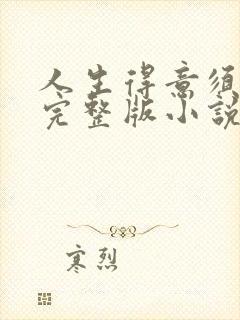 人生得意须
完整版小說
寒烈